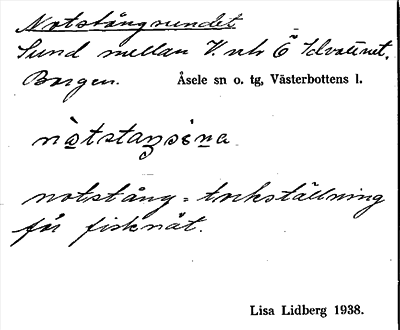 Notstångsundet.
Sund mellan V. och Ö Idvattnet,
Borgen. Åsele sn o. tg, Västerbottens l.
notstång = torkställning
för fisknät.
Lisa Lidberg 1938.